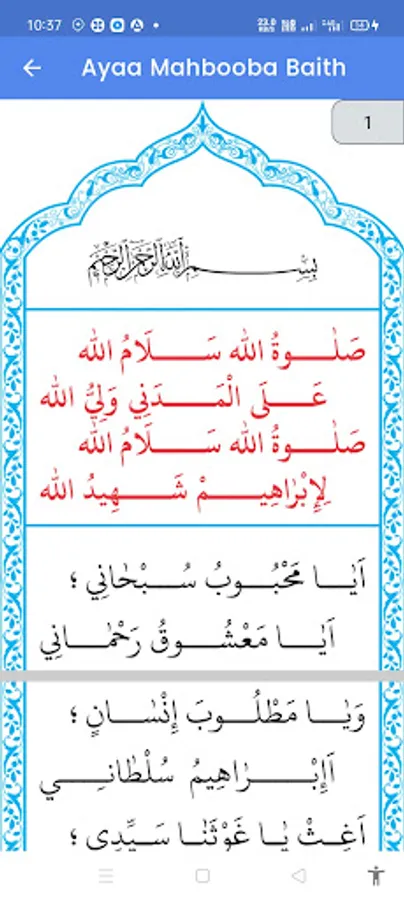 10:37
Ayaa Mahbooba Baith
1
بِسْمِ اللهِ الرَّحْمٰنِ الرَّحِيْمِ
صَلٰوةُ الله سَلَامُ الله
عَلَى الْمَدَنِي وَلِيُّ الله
صَلٰوةُ الله سَلَامُ الله
لِإِبْرَاهِيمْ شَهِيدُ الله
اَيَا مَحْبُوبُ سُبْحَانِي ؛
اَيَا مَعْشُوقُ رَحْمَانِي
وَيَا مَطْلُوبَ إِنْسَانٍ ؛
اَإِبْرَاهِيمُ سُلْطَانِي
اَغِثْ يَا غَوْثَنَا سَيِّدِى ؛